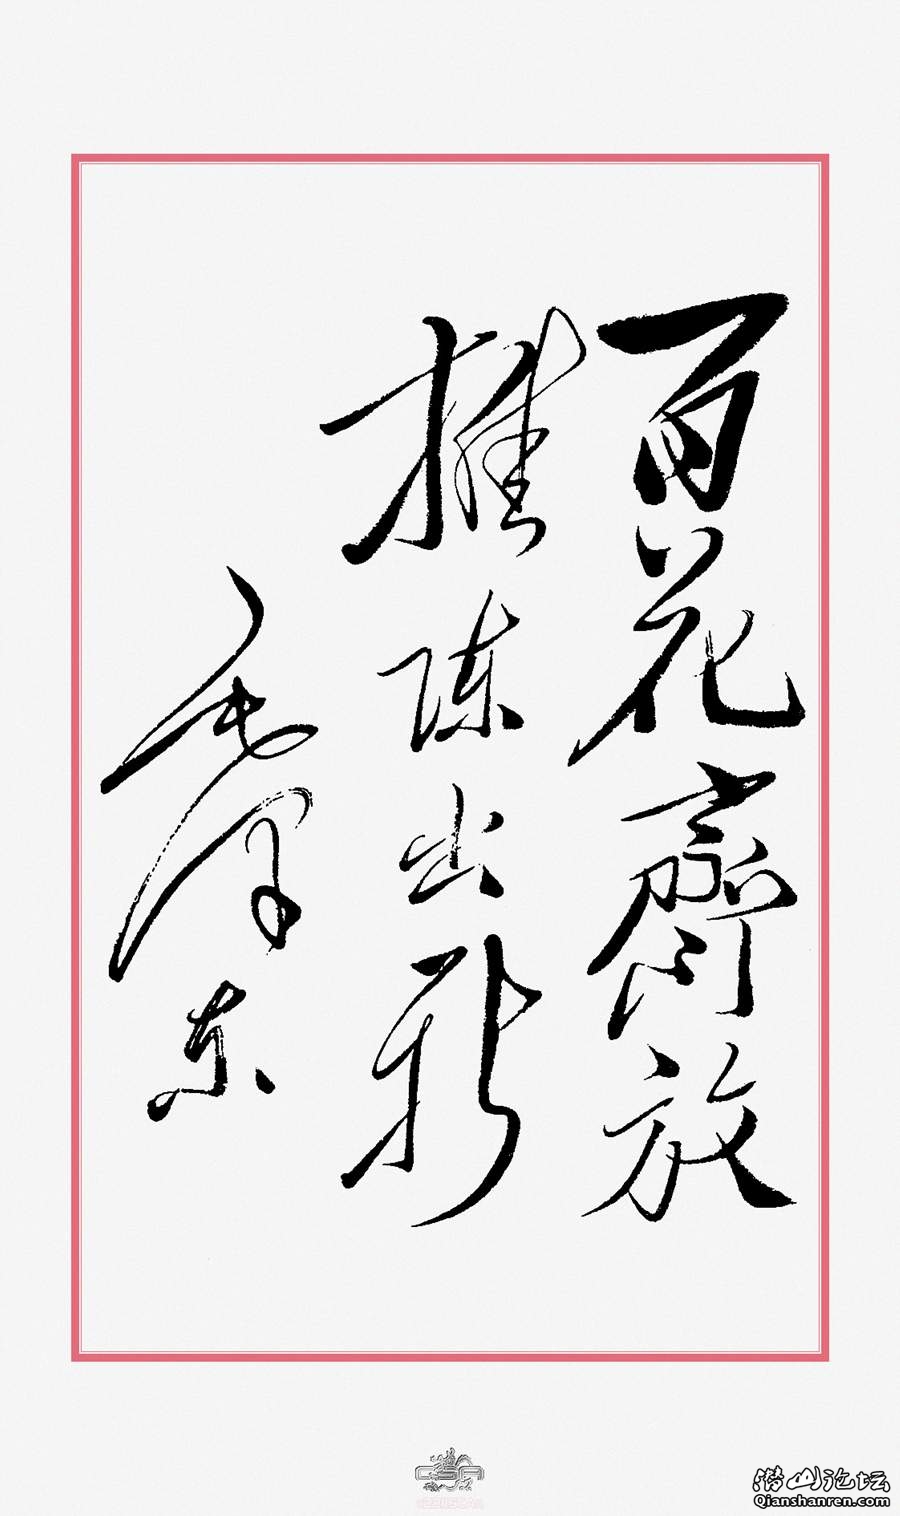 百花齊放
推陈出新
毛泽东
CSA
潜山论坛
Qianshanren.com